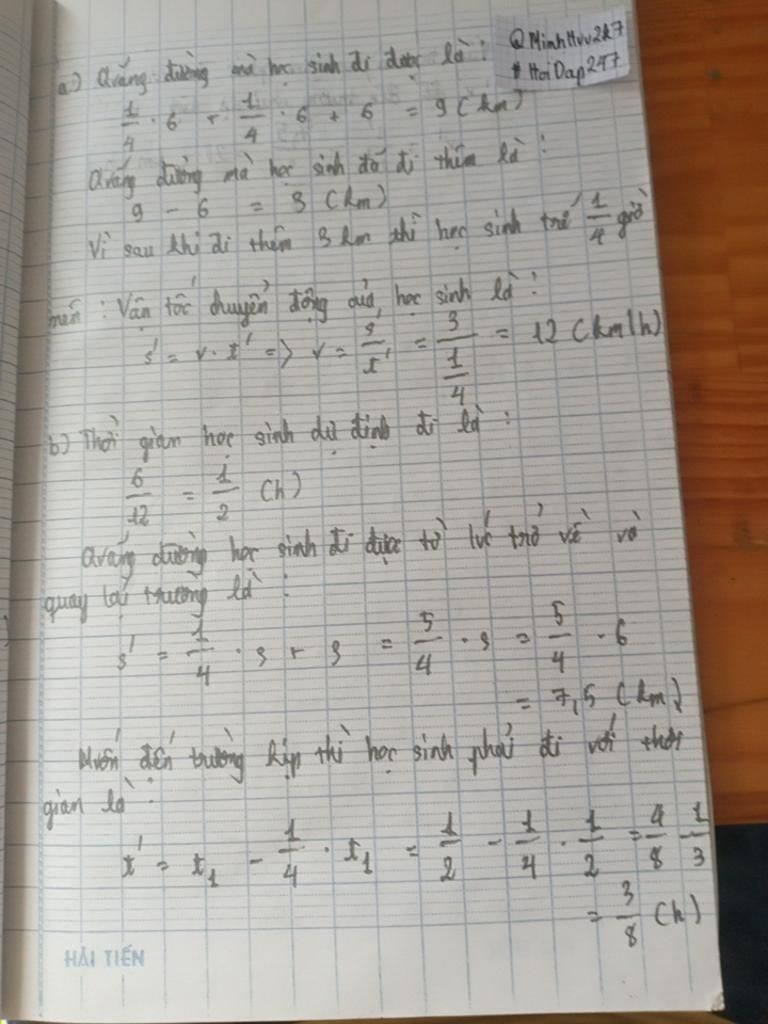 @MinhHuv2k7
# HoiDap247
a) Quãng đường mà học sinh đi được là :
1/4 . 6 + 1/4 . 6 + 6 = 9 (km)
Quãng đường mà học sinh đó đi thêm là :
9 - 6 = 3 (km)
Vì sau khi đi thêm 3 km thì học sinh trễ 1/4 giờ
nên : Vận tốc chuyển động của học sinh là :
s' = v . t' => v = s'/t' = 3/(1/4) = 12 (km/h)
b) Thời gian học sinh dự định đi là :
6/12 = 1/2 (h)
Quãng đường học sinh đi được từ lúc trở về và
quay lại trường là :
s' = 1/4 . s + s = 5/4 . s = 5/4 . 6
= 7,5 (km)
Muốn đến trường kịp thì học sinh phải đi với thời
gian là :
t' = t1 - 1/4 . t1 = 1/2 - 1/4 . 1/2 = 4/8 1/3
= 3/8 (h)
HẢI TIẾN